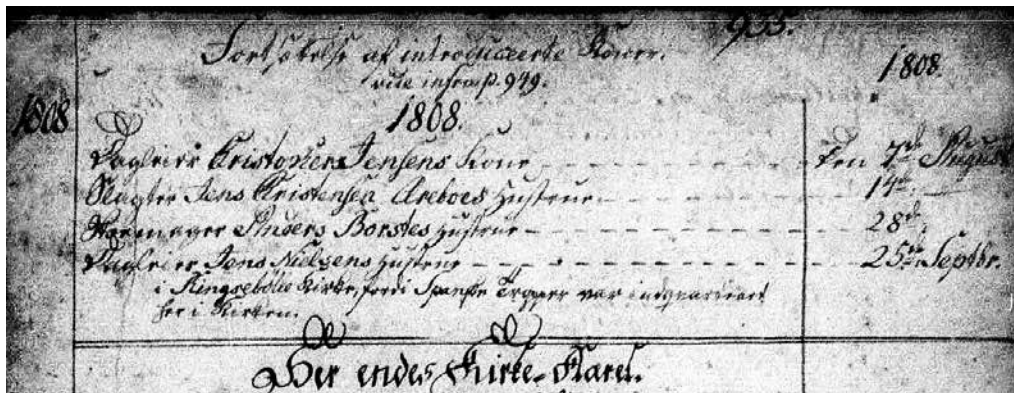 933.
Fortsættelse af introduceerte Koner.
vide infra p. 949.
1808.
1808
1808.
Dagleier Kristopher Jensens Kone - - - den 7de August
Slagter Jens Kristensen Areboes Hustrue - - - 14de
Anders Borstes Hustrue - - - 28de
Dagleier Jens Nielsens Hustrue - - - 25de Septbr.
i Ringsebølle Kirke, fordi Spanske Tropper var indqvarteret
her i Kirken.
Her endes Kirke-Karel.